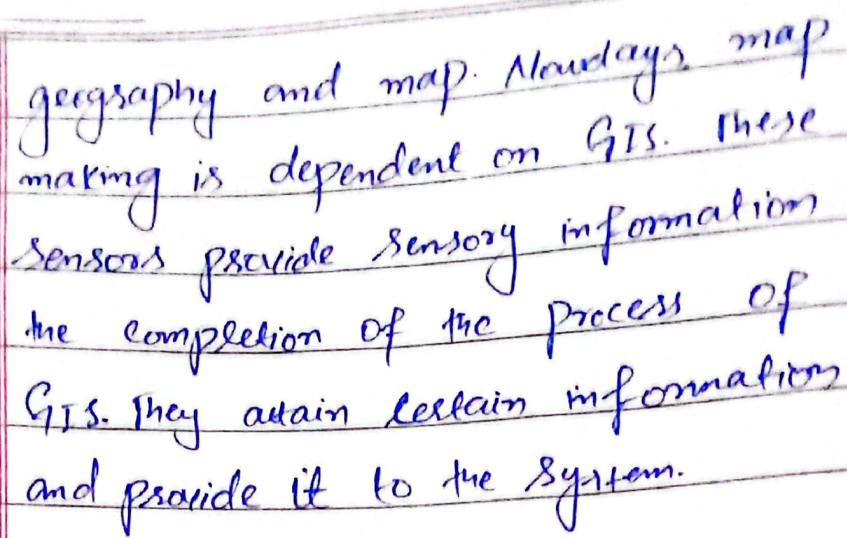 geography and map. Nowdays map
making is dependent on GIS. These
sensors provide sensory information
the completion of the process of
GIS. They attain certain information
and provide it to the system.